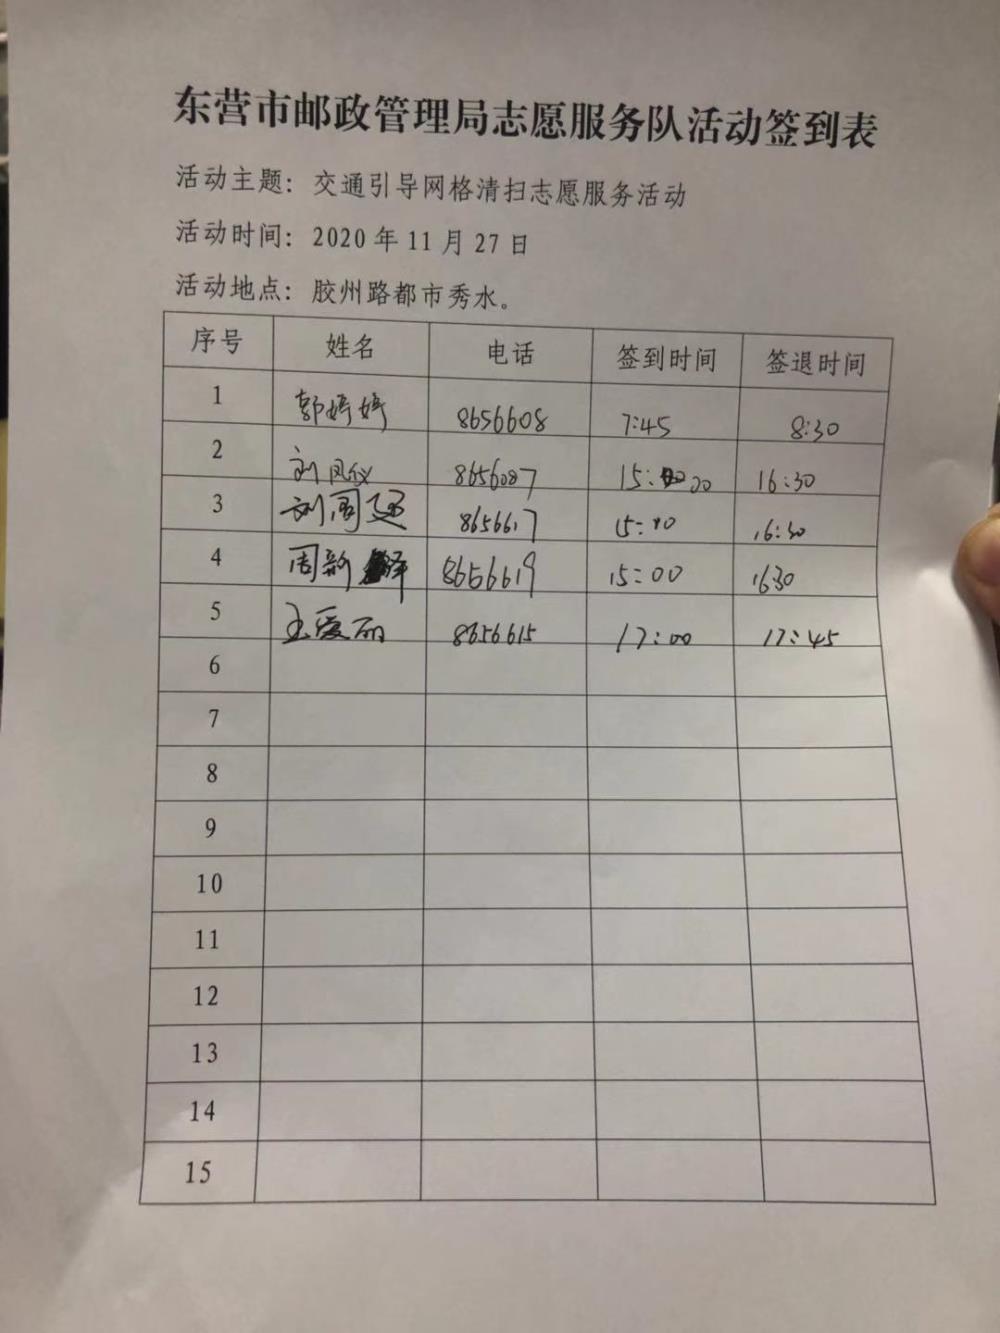 东营市邮政管理局志愿服务队活动签到表
活动主题：交通引导网格清扫志愿服务活动
活动时间：2020 年 11 月 27 日
活动地点：胶州路都市秀水。
序号 姓名 电话 签到时间 签退时间
1 郭婷婷 8656608 7:45 8:30
2 刘凤仪 8656087 15:00 16:30
3 刘周 8656617 15:10 16:30
4 周新泽 8656619 15:00 1630
5 王爱丽 8656615 17:00 17:45
6
7
8
9
10
11
12
13
14
15